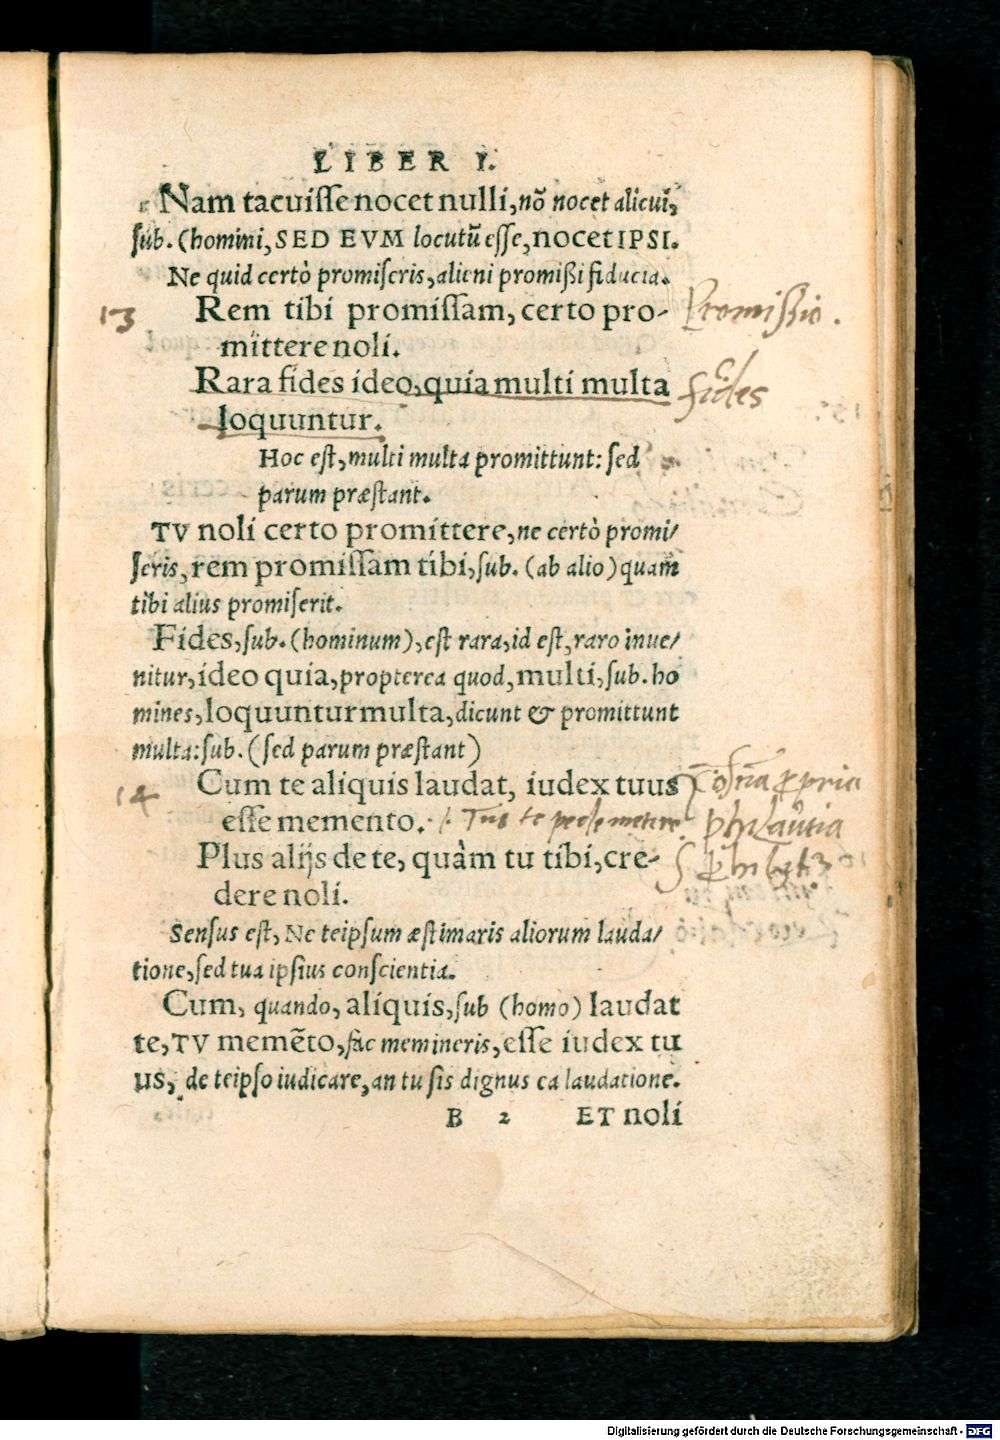 LIBER I.
Nam tacuisse nocet nulli, nō nocet alicui,
sub. (homini, SED EVM locutū esse, nocet IPSI.
Ne quid certò promiseris, alieni promissi fiducia.
13 Rem tibi promissam, certo pro- Promissio.
mittere noli.
Rara fides ideo, quia multi multa fides
loquuntur.
Hoc est, multi multa promittunt: sed
parum præstant.
TV noli certo promittere, ne certò promi/
seris, rem promissam tibi, sub. (ab alio) quam
tibi alius promiserit.
Fides, sub. (hominum), est rara, id est, raro inue/
nitur, ideo quia, propterea quod, multi, sub. ho
mines, loquuntur multa, dicunt & promittunt
multa: sub. (sed parum præstant)
14 Cum te aliquis laudat, iudex tuus propria
esse memento. te philautia
Plus alijs de te, quàm tu tibi, cre-
dere noli.
Sensus est, Ne teipsum æstimaris aliorum lauda/
tione, sed tua ipsius conscientia.
Cum, quando, aliquis, sub (homo) laudat
te, TV memēto, fac memineris, esse iudex tu
us, de teipso iudicare, an tu sis dignus ea laudatione.
B 2 ET noli
Digitalisierung gefördert durch die Deutsche Forschungsgemeinschaft - DFG